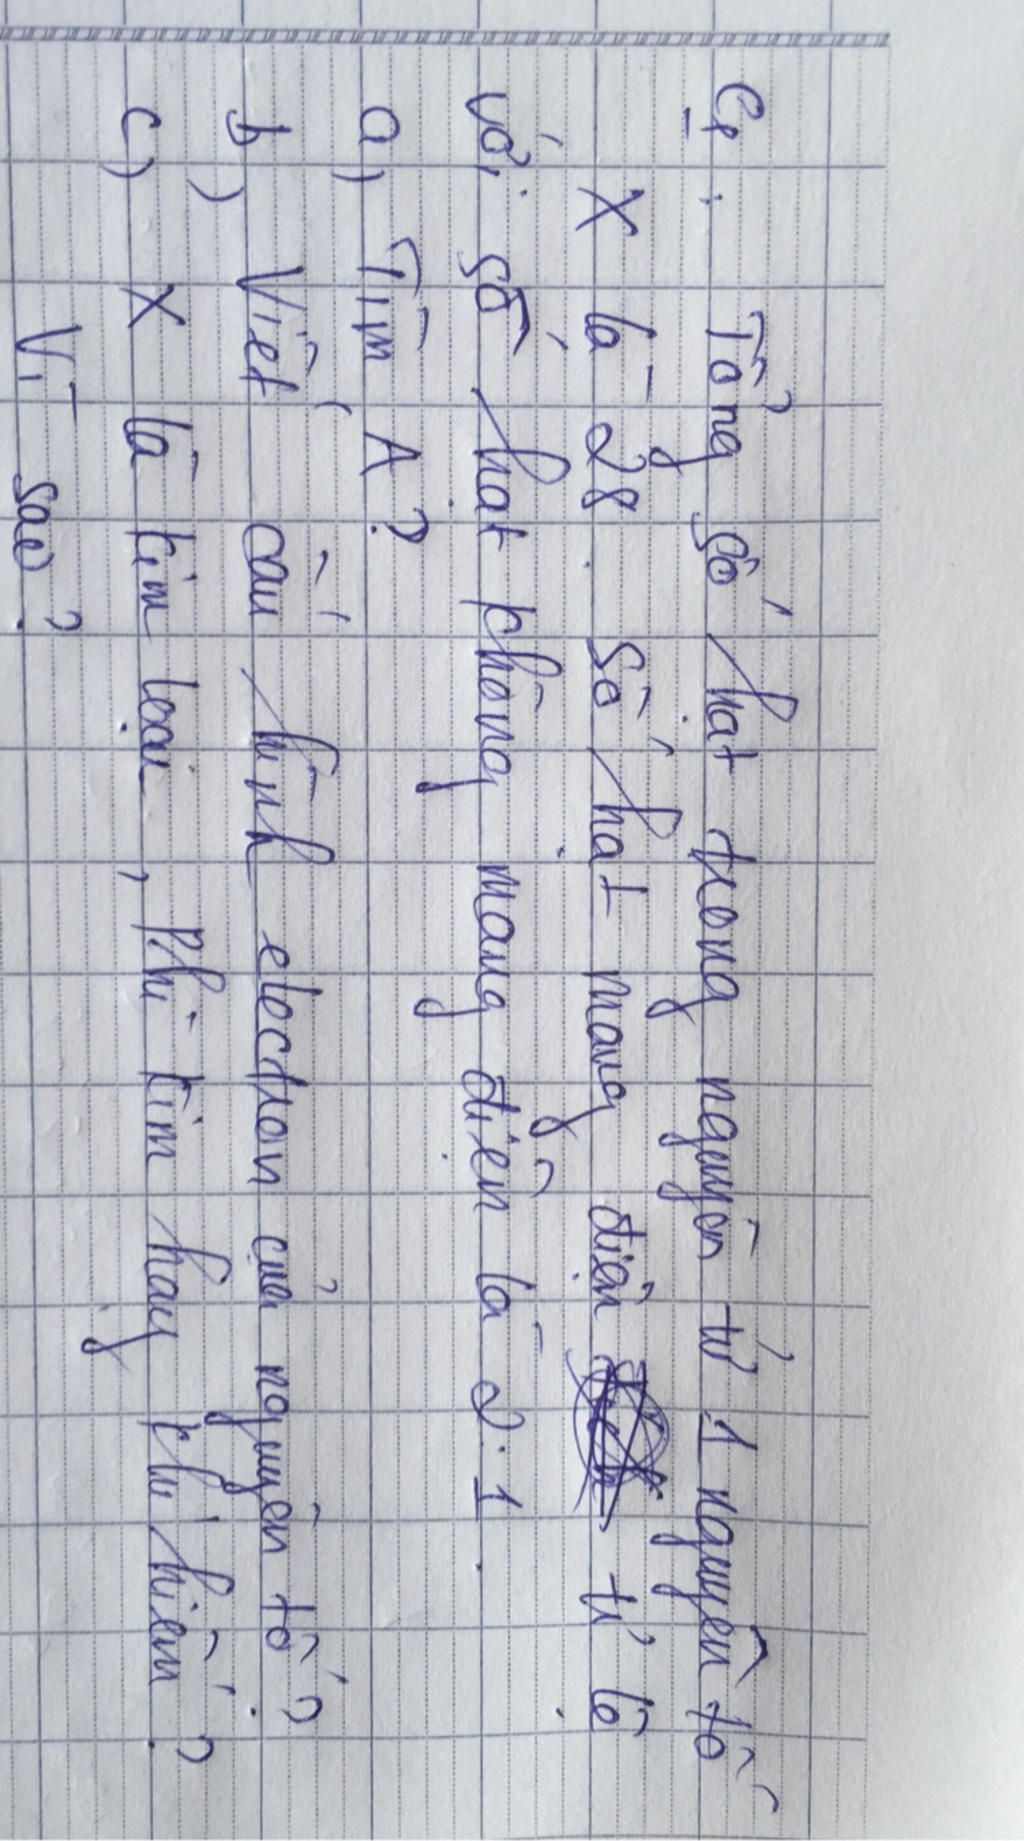 C4: Tổng số hạt trong nguyên tử 1 nguyên tố
X là 28. Số hạt mang điện tỉ lệ
với số hạt không mang điện là 2:1.
a) Tìm A?
b) Viết cấu hình electron của nguyên tố?
c) X là kim loại, Phi kim hay khí hiếm?
Vì sao?